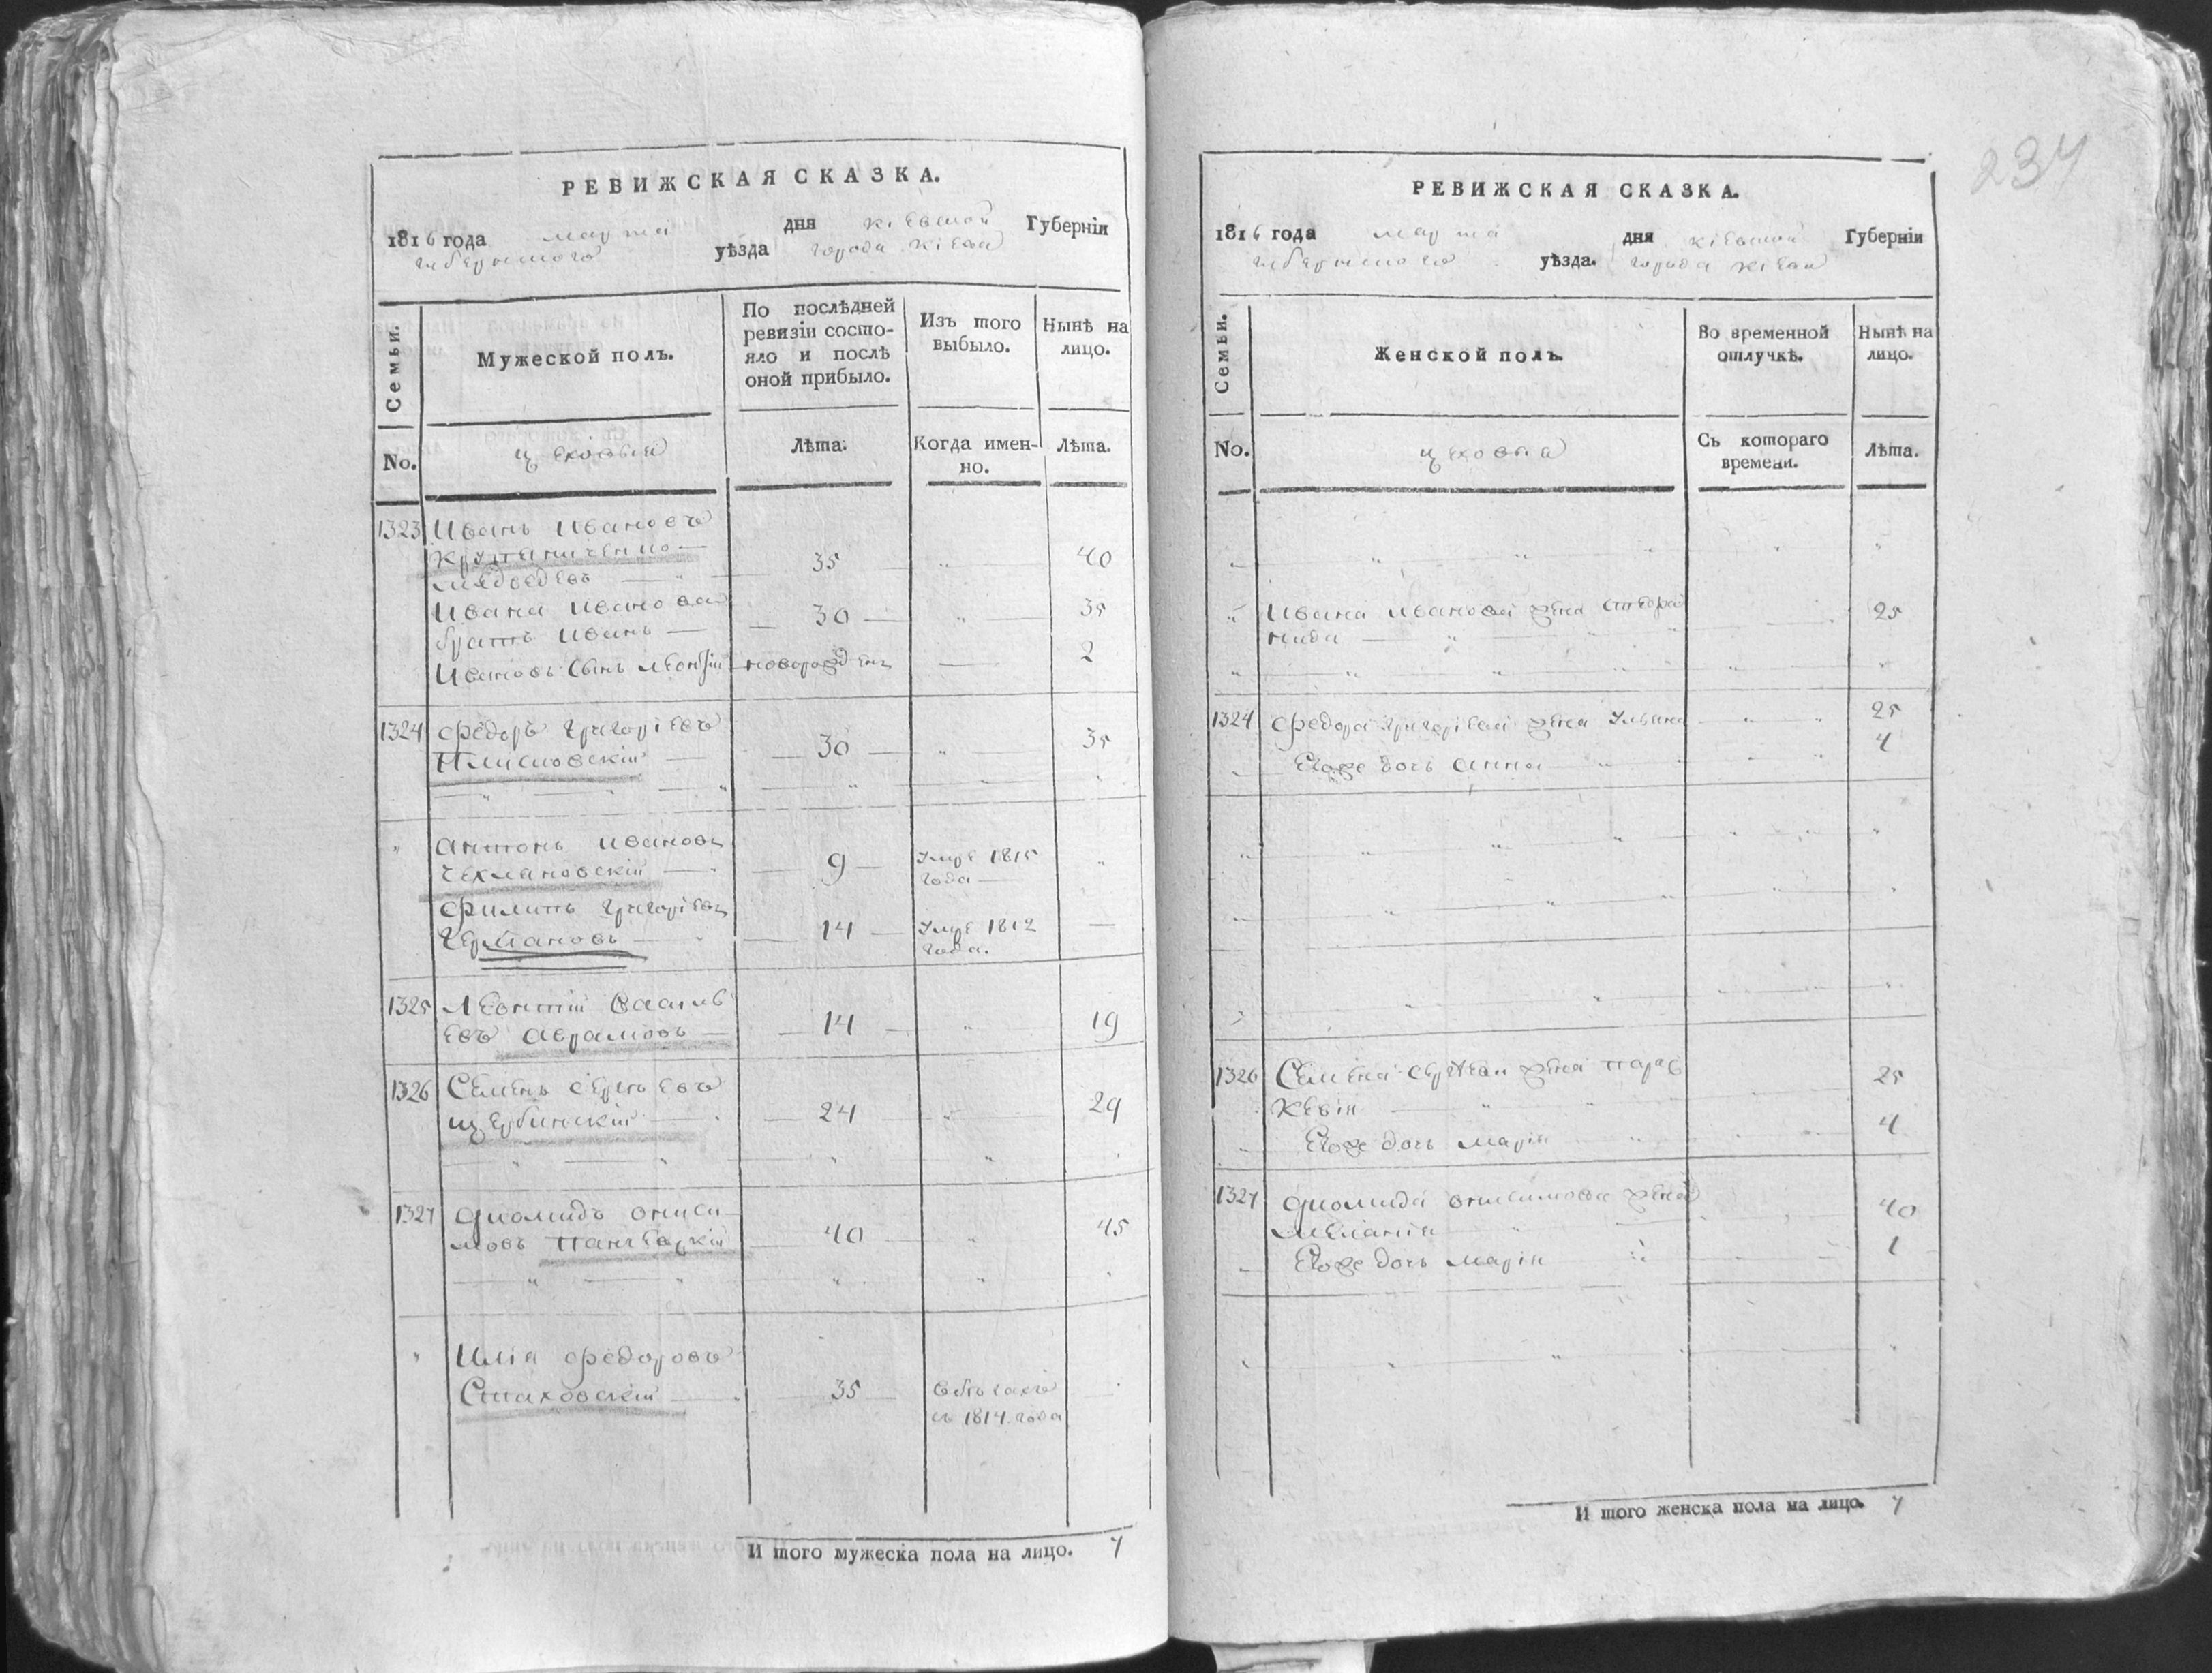 РЕВИЖСКАЯ СКАЗКА.
1816 года марта дня Кіевской Губерніи
губернского уѣзда города Кіева
Семьи.
Мужеской полъ.
По послѣдней ревизіи состо-
яло и послѣ оной прибыло.
Изъ того выбыло.
Нынѣ на лицо.
No.
цеховыя
Лѣта.
Когда имен-
но.
Лѣта.
1323 Иванъ Ивановъ
медведевъ 35 40
Ивана Иванова
братъ Иванъ 30 35
Ивановъ сынъ Леонтій новорожденъ 2
1324 Федоръ Григоріевъ
30 35
Антонъ Ивановъ
Чехмановскій 9 Умре 1815
года
Филипъ Григоріевъ
Германовъ 14 Умре 1812
года.
1325 Леонтій Василь
евъ Аврамовъ 14 19
1326 Семенъ Сергѣевъ
щербинскій 24 29
1327 Диомидъ Ониси
мовъ 40 45
Илія Федоровъ
Стаховскій 35 в бѣгахъ
съ 1814 года
И того мужеска пола на лицо. 7
234
РЕВИЖСКАЯ СКАЗКА.
1816 года марта дня Кіевской Губерніи
губернского уѣзда. города Кіева
Семьи.
Женской полъ.
Во временной отлучкѣ.
Нынѣ на лицо.
No.
цеховыя
Съ котораго времени.
Лѣта.
Ивана Иванова жена
25
1324 Федора Григоріева жена Ульяна 25
Егоже дочь Анна 4
1326 Семена Сергѣева жена Парас
кевія 25
Егоже дочь Марія 4
1327 Диомида Онисимова жена
Меланія 40
Егоже дочь Марія 1
И того женска пола на лицо. 7